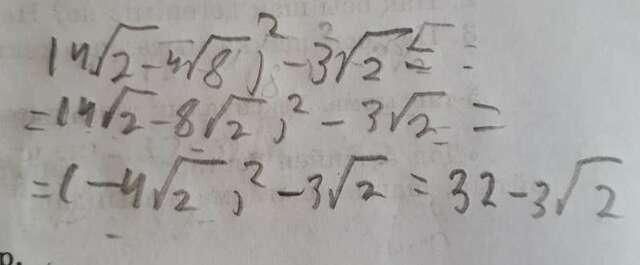 (4√2-4√8)²-3√2 =
=(4√2-8√2)²-3√2 =
=(-4√2)²-3√2=32-3√2
p.